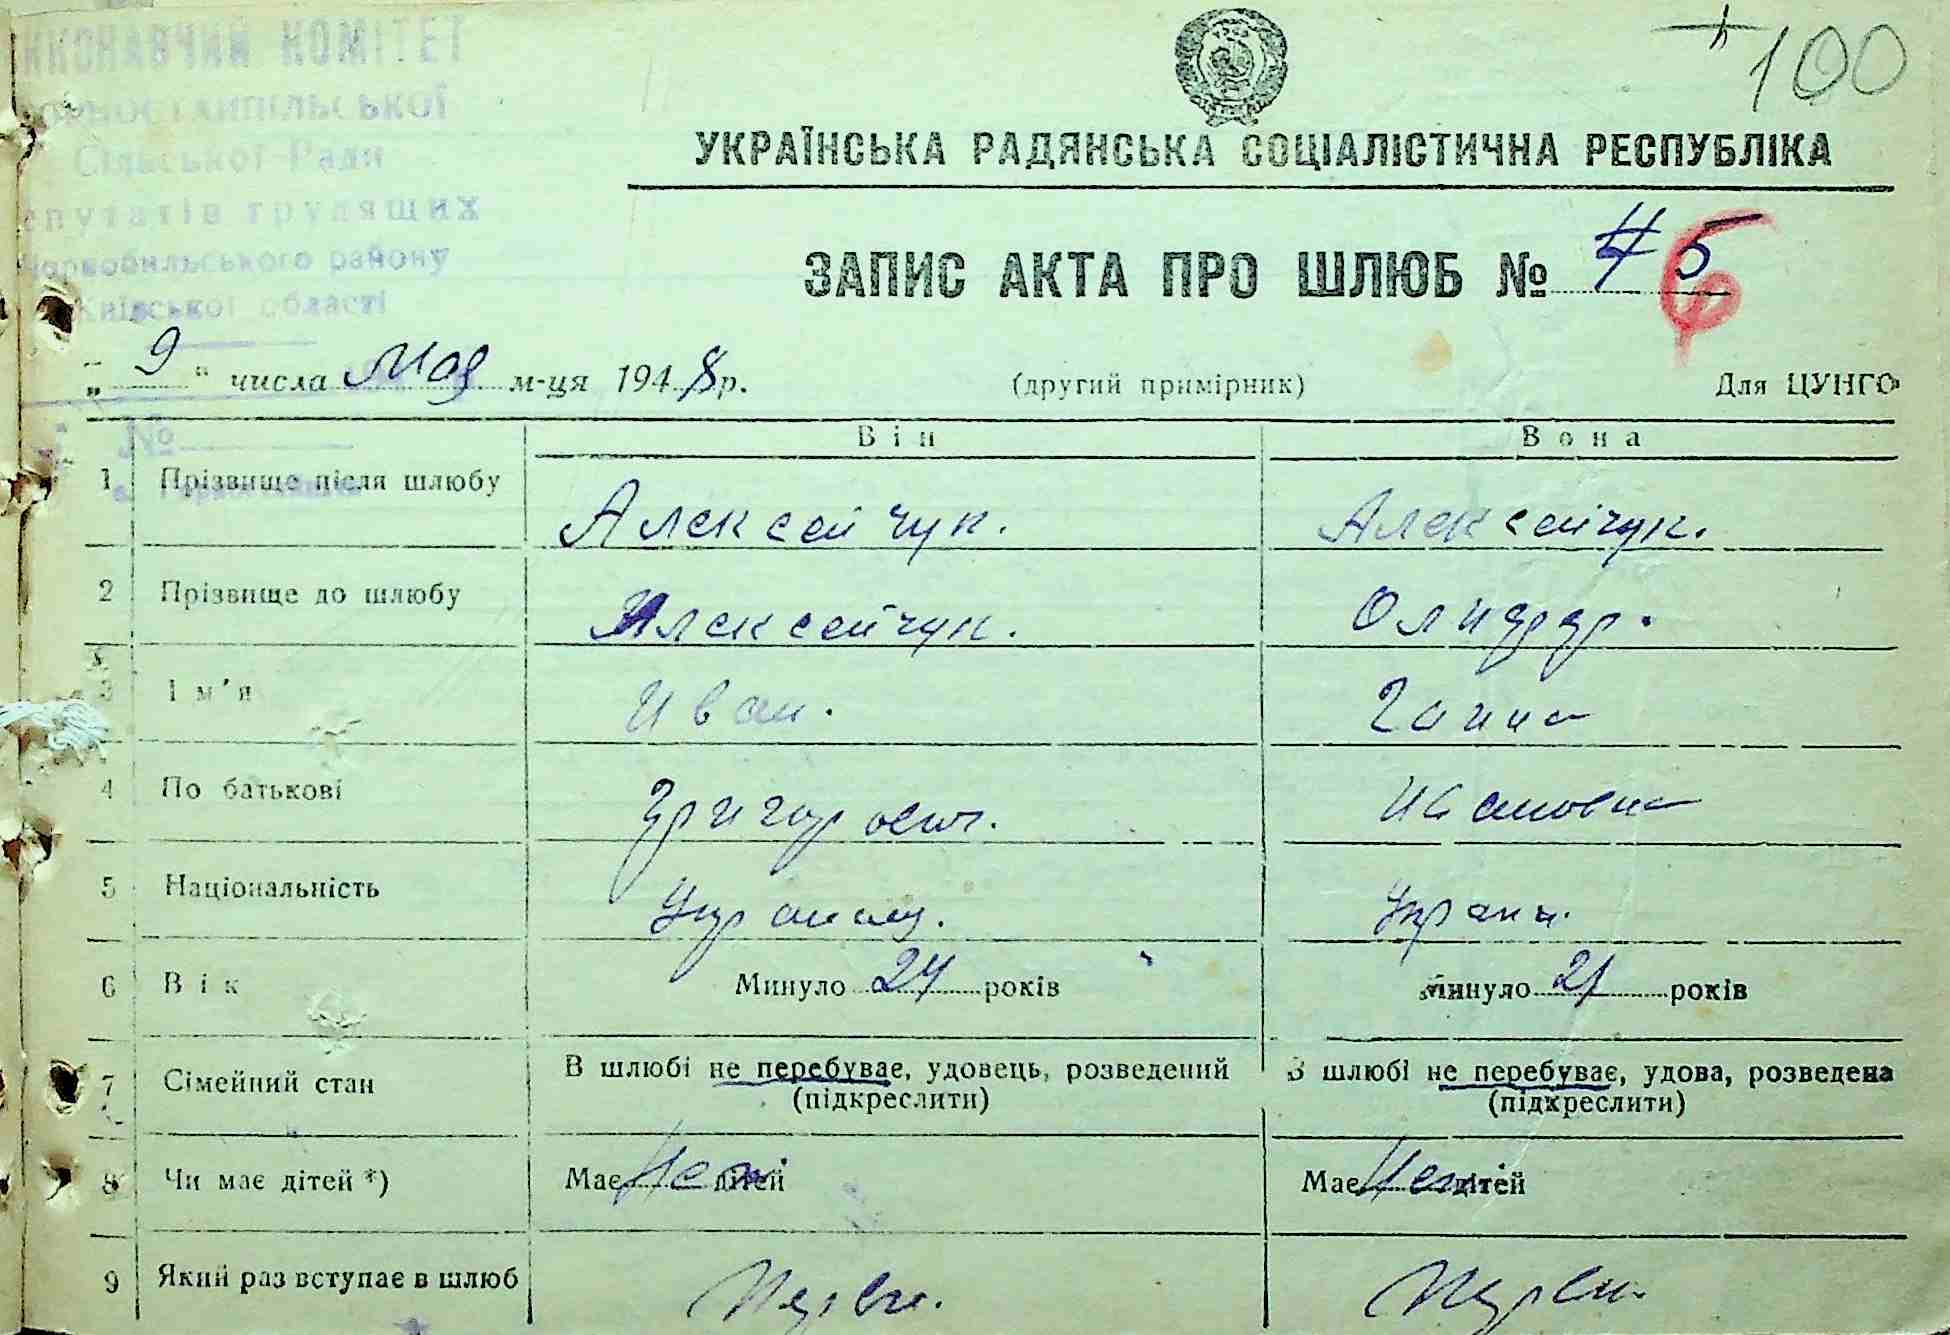 100
ВИКОНАВЧИЙ КОМІТЕТ
ГОРНОСТАЙПІЛЬСЬКОЇ
Сільської Ради
депутатів трудящих
Чорнобильського району
Київської області
УКРАЇНСЬКА РАДЯНСЬКА СОЦІАЛІСТИЧНА РЕСПУБЛІКА
ЗАПИС АКТА ПРО ШЛЮБ № 5
„ 9 “ числа Мая м-ця 1948 р. (другий примірник) Для ЦУНГО
№
Він Вона
1 Прізвище після шлюбу Алексейчук. Алексейчук.
2 Прізвище до шлюбу Алексейчук. Олифир.
3 Ім'я Иван. Ганна
4 По батькові Григорович. Ивановна
5 Національність Украинец. Украин.
6 Вік Минуло 24 років Минуло 21 років
7 Сімейний стан В шлюбі не перебуває, удовець, розведений В шлюбі не перебуває, удова, розведена
(підкреслити) (підкреслити)
8 Чи має дітей *) Має Нет дітей Має Нет дітей
9 Який раз вступає в шлюб Перви. Перви.